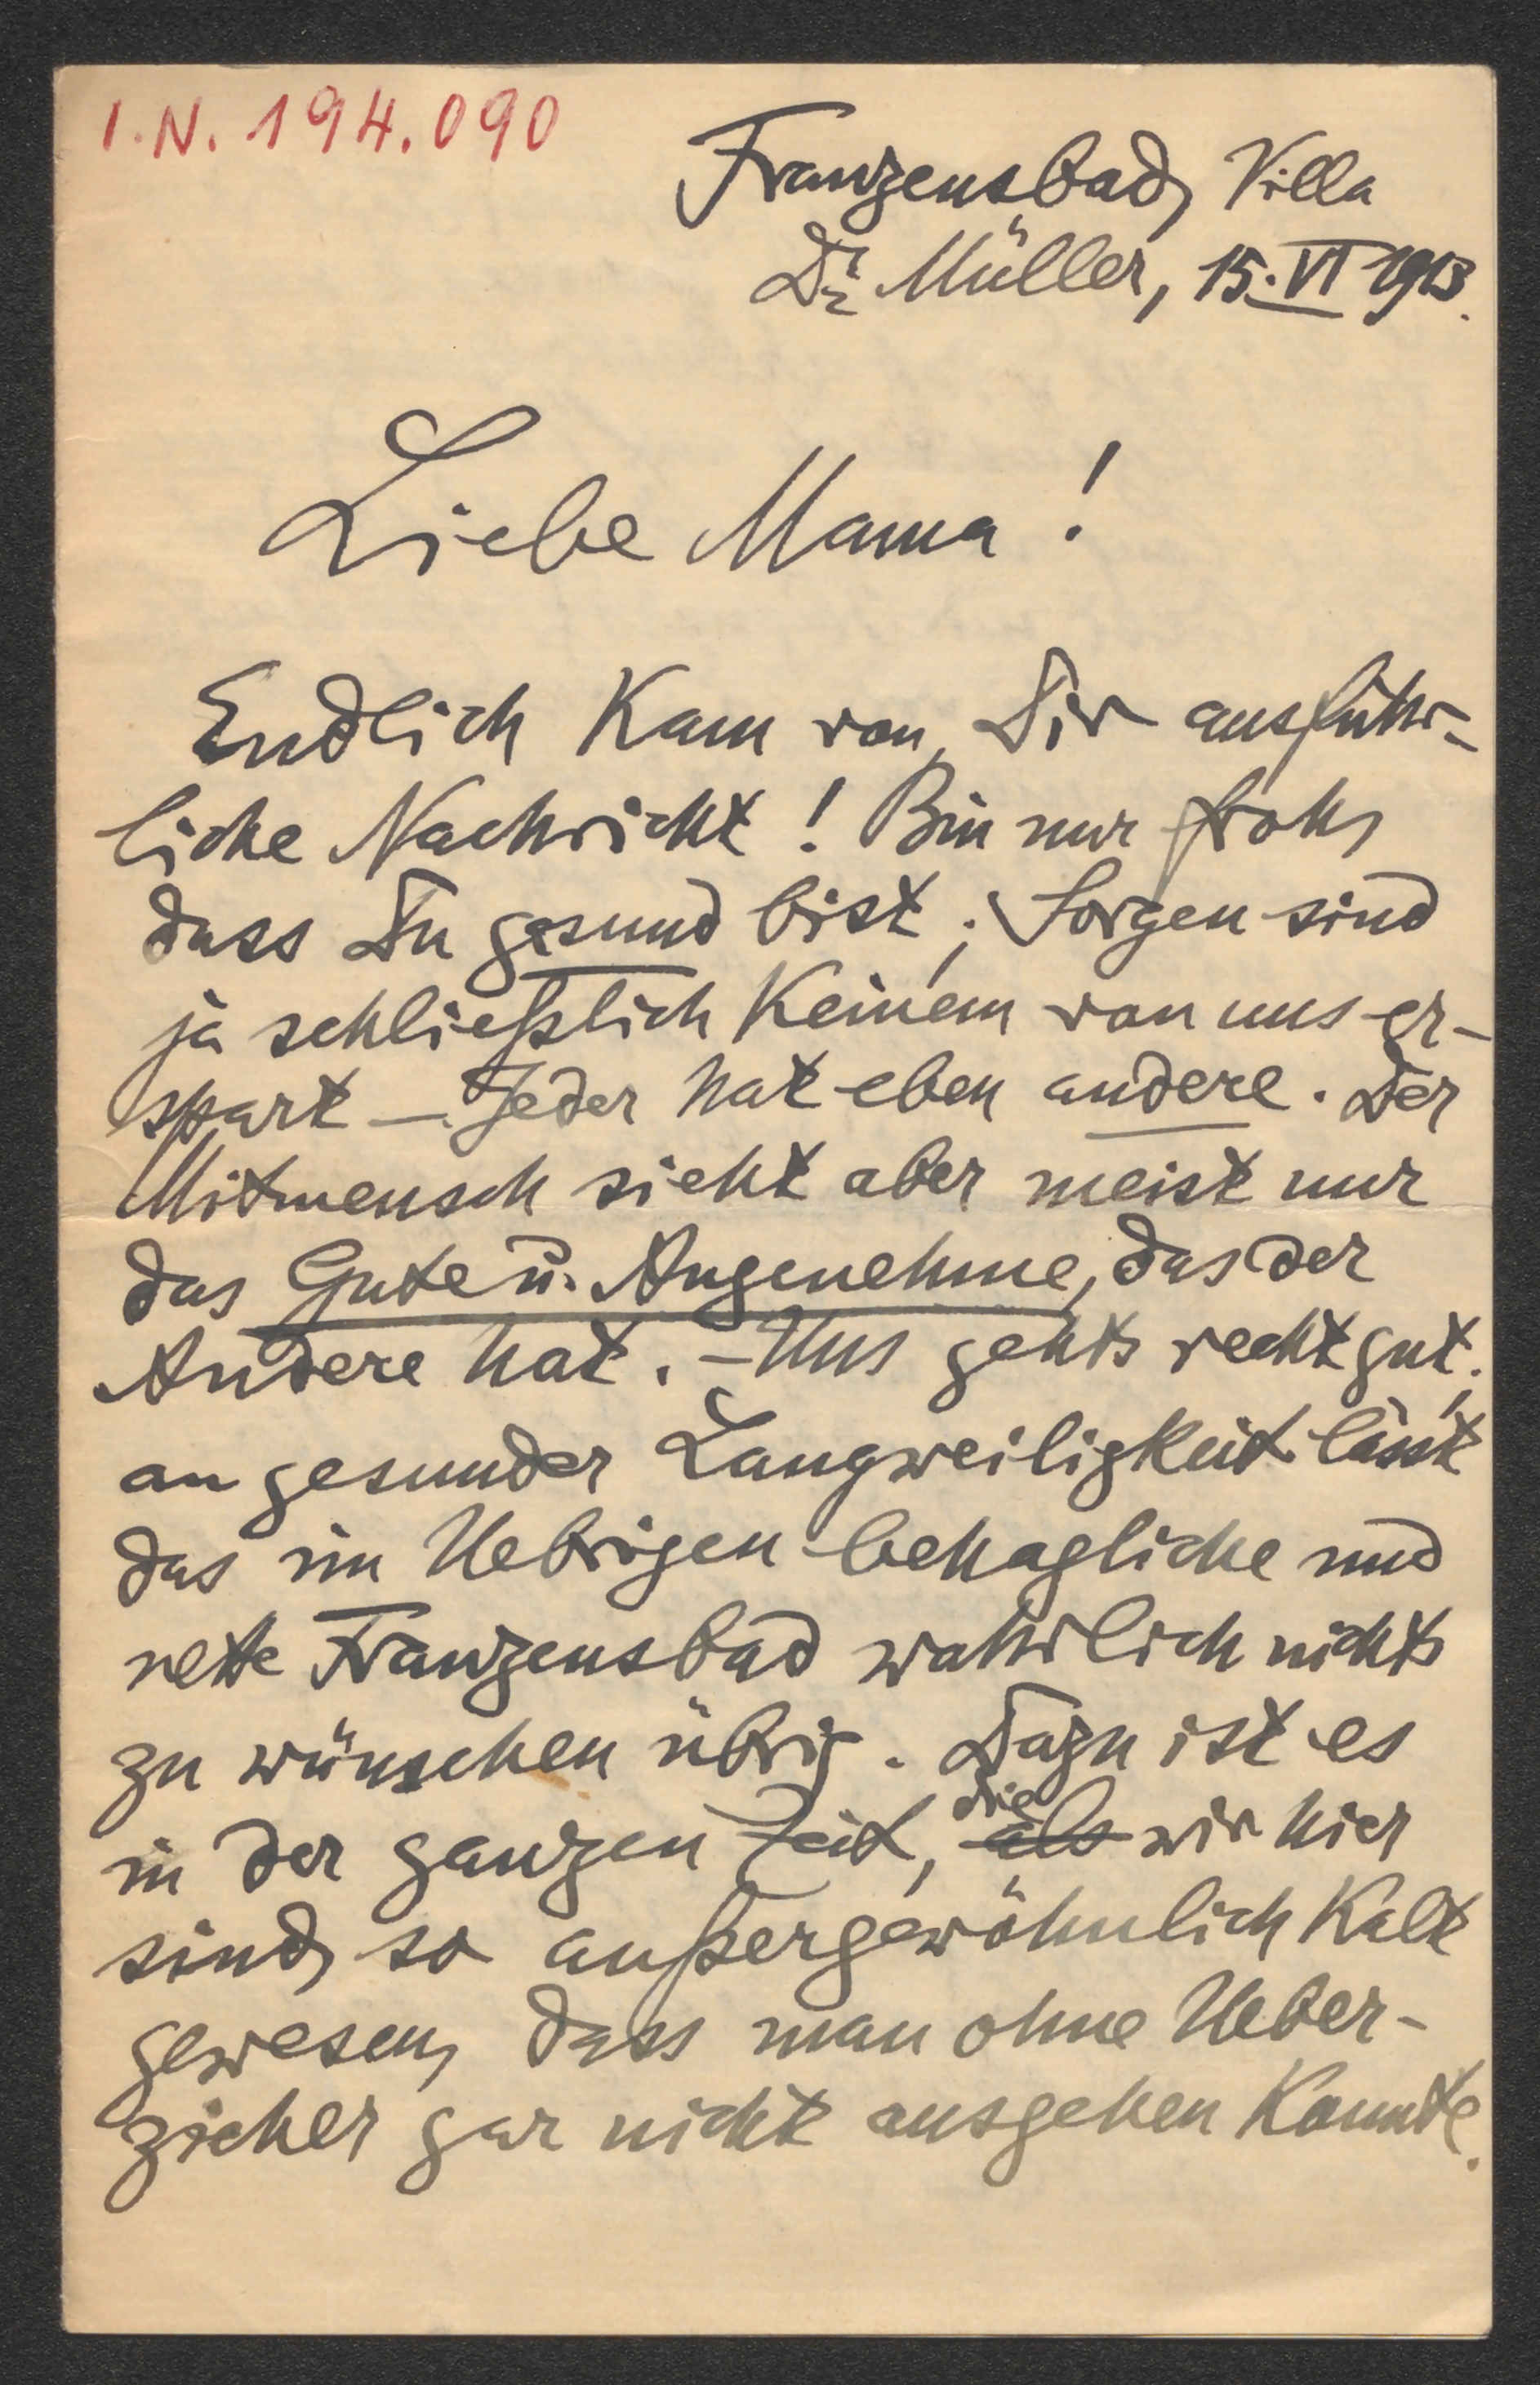 I.N. 194.090
Franzensbad, Villa
Dr Müller, 15. VI 1913.
Liebe Mama!
Endlich kam von Dir ausführ-
liche Nachricht! Bin nur froh,
dass Du gesund bist; Sorgen sind
ja schließlich Keinem von uns er-
spart – Jeder hat eben andere. Der
Mitmensch sieht aber meist nur
das Gute u. Angenehme, das der
Andere hat. – Uns gehts recht gut;
an gesunder Langweiligkeit lässt
das im Uebrigen behagliche und
nette Franzensbad wahrlich nichts
zu wünschen übrig. Dazu ist es
in der ganzen Zeit, als die wir hier
sind, so außergewöhnlich kalt
gewesen, dass man ohne Ueber-
zieher gar nicht ausgehen konnte.